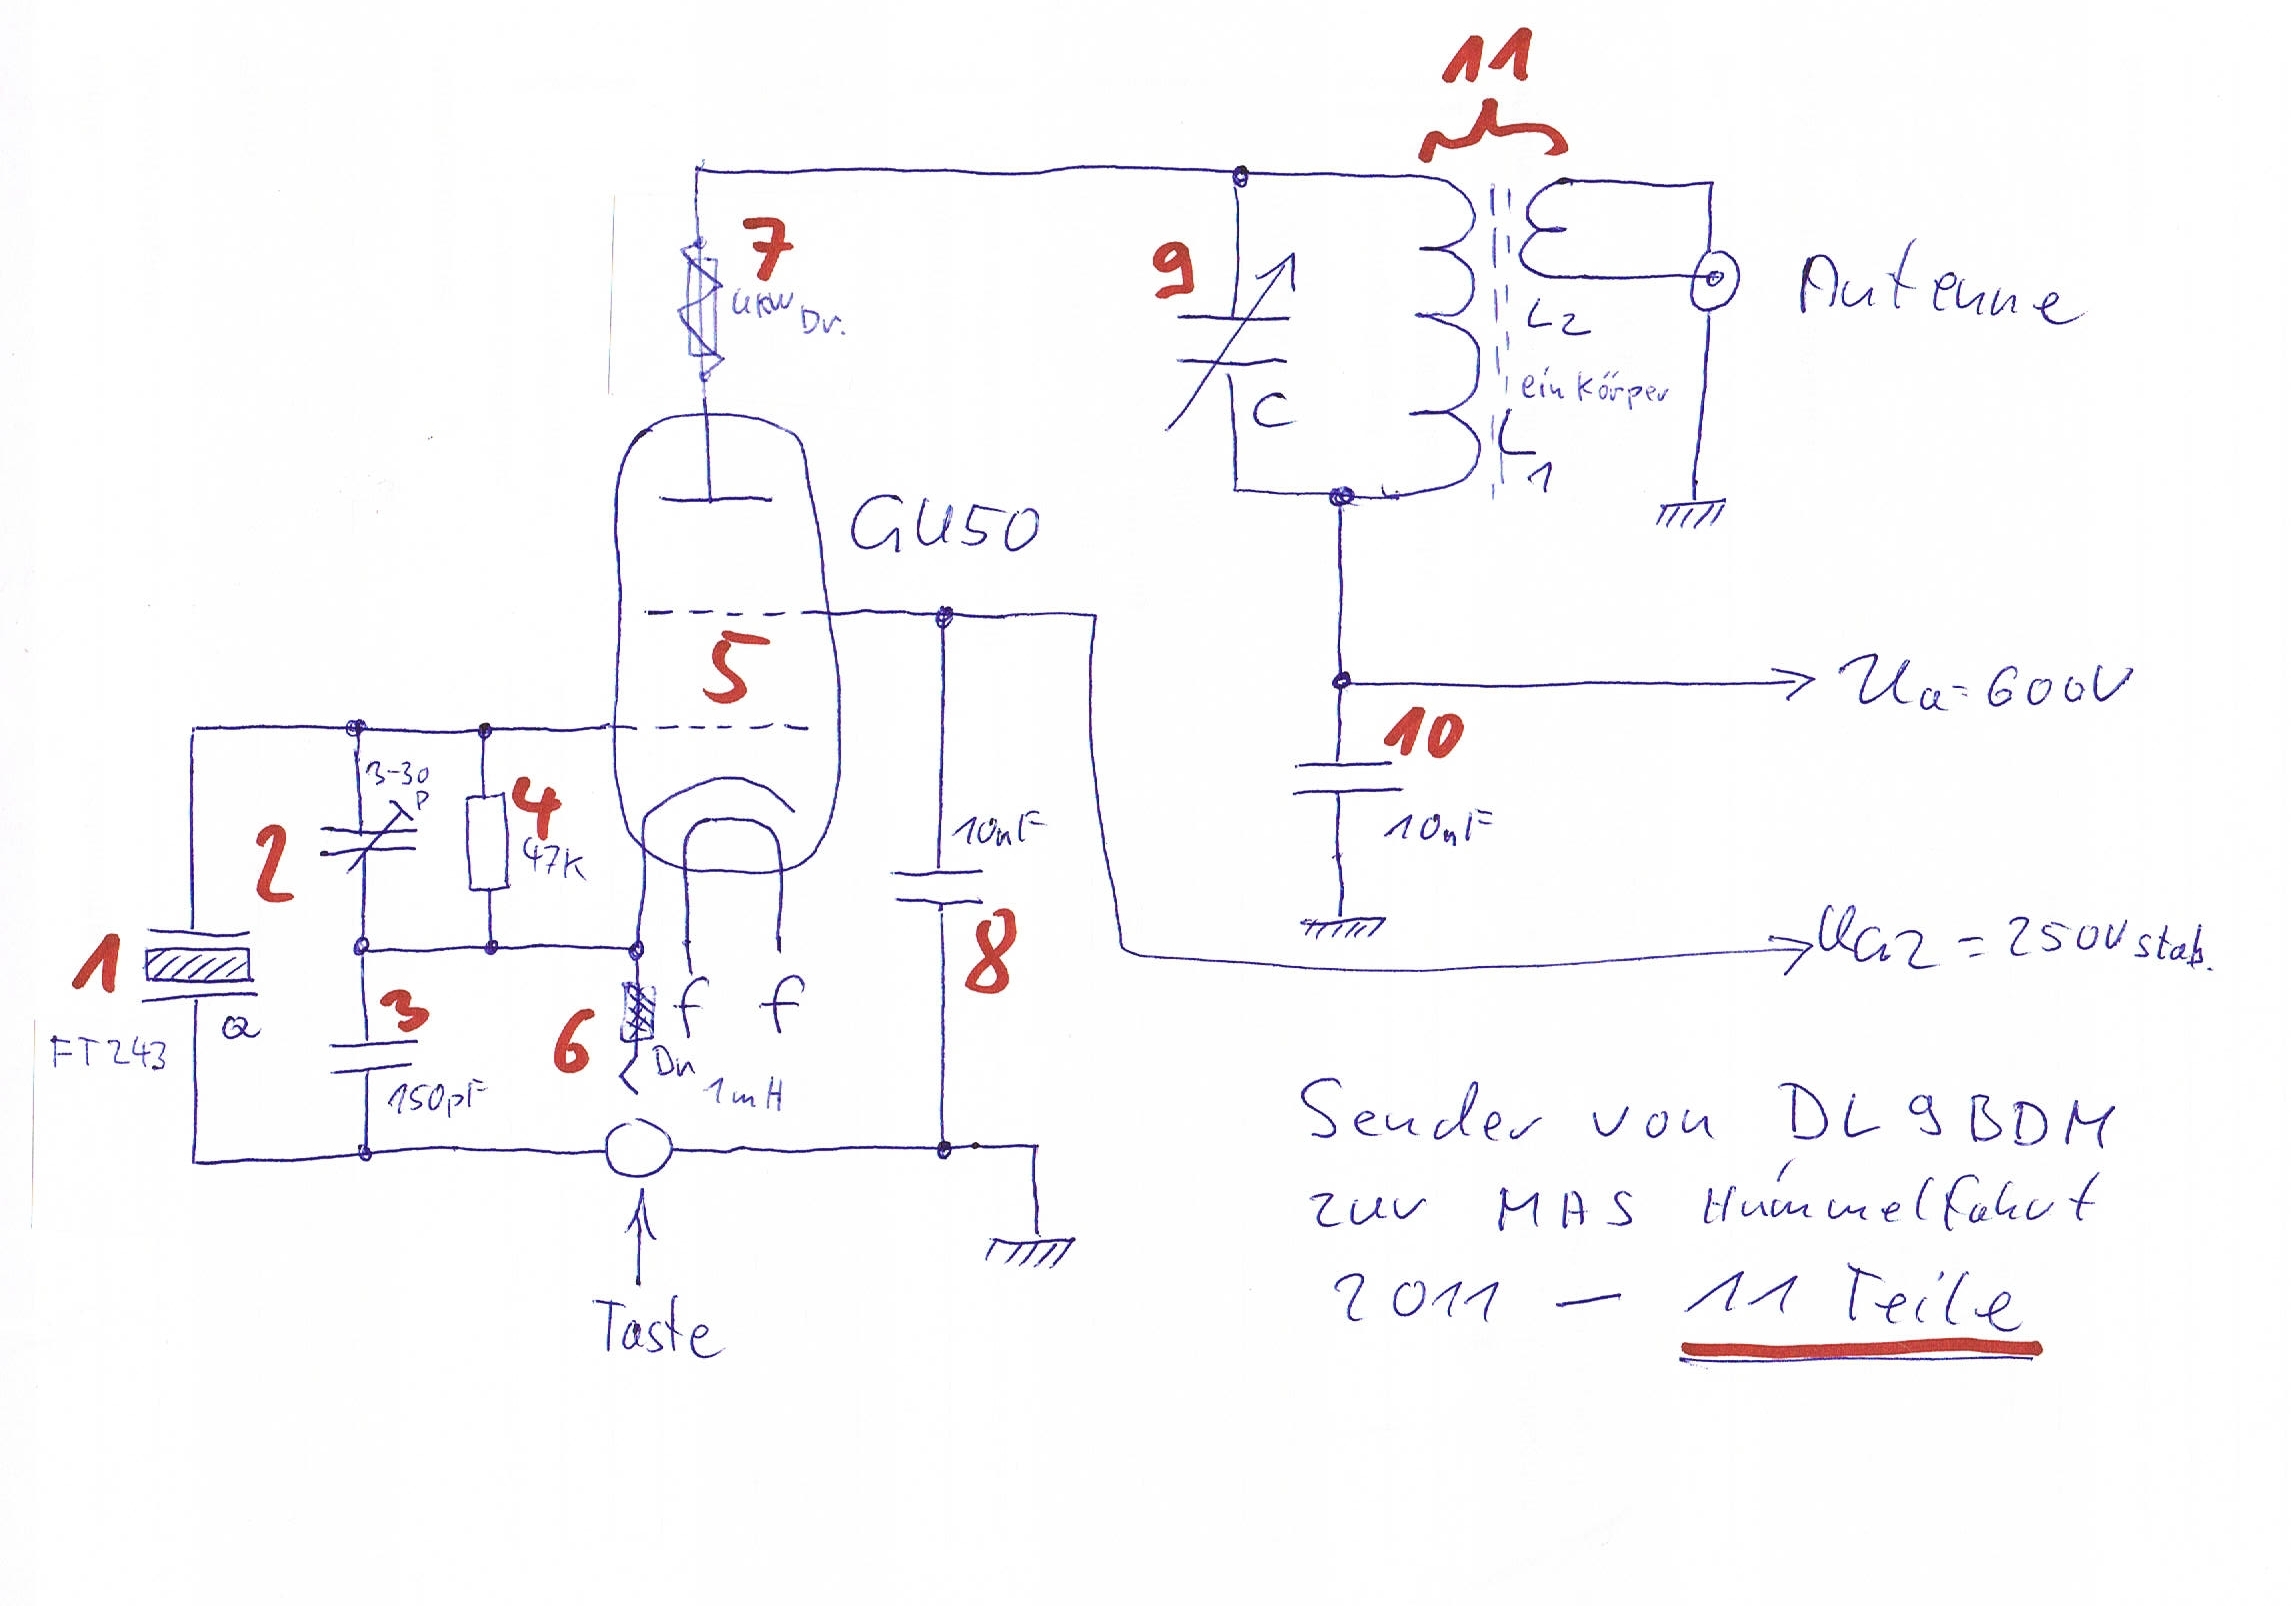 11
7
UKW Dr.
9
C
L2
ein Körper
L1
Antenne
GU50
5
Ua = 600V
10
10nF
3-30
P
2
4
47K
10nF
8
UG2 = 250V stab.
1
Q
FT 243
3
150pF
6
f f
Dr
1mH
Taste
Sender von DL9BDM
zur MAS Himmelfahrt
2011 – 11 Teile